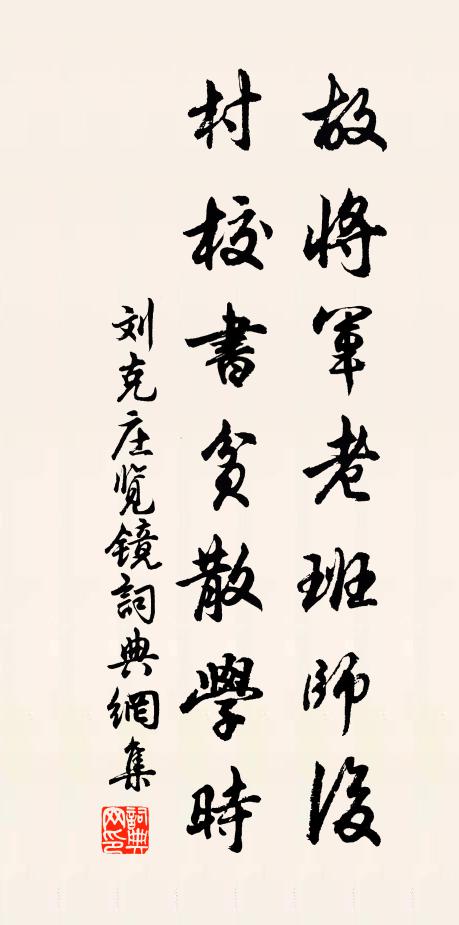 故將軍老班師後
村校書貧散學時
刘克庄览镜詞典網集
詞典
网印